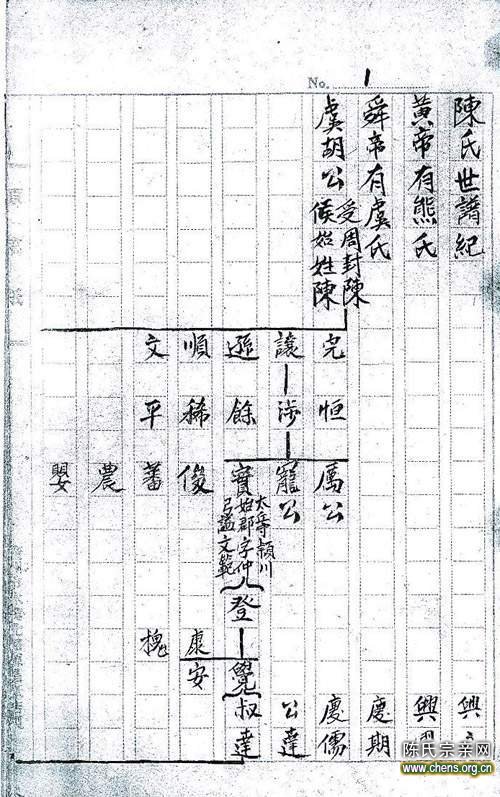 No. 1
陳氏世譜紀
黃帝有熊氏
舜帝有虞氏
虞胡公
受周封陳
侯始姓陳
完 讓 遜 順 文
恒 涉 餘 稀 平
厲公 寵公 寔 俊 蕃 農 嬰
太丘等頴川
始郡字仲
弓謚文範
登 康 安
叔達
公達
慶儒
慶期
興
興
陈氏宗亲网
www.chens.org.cn